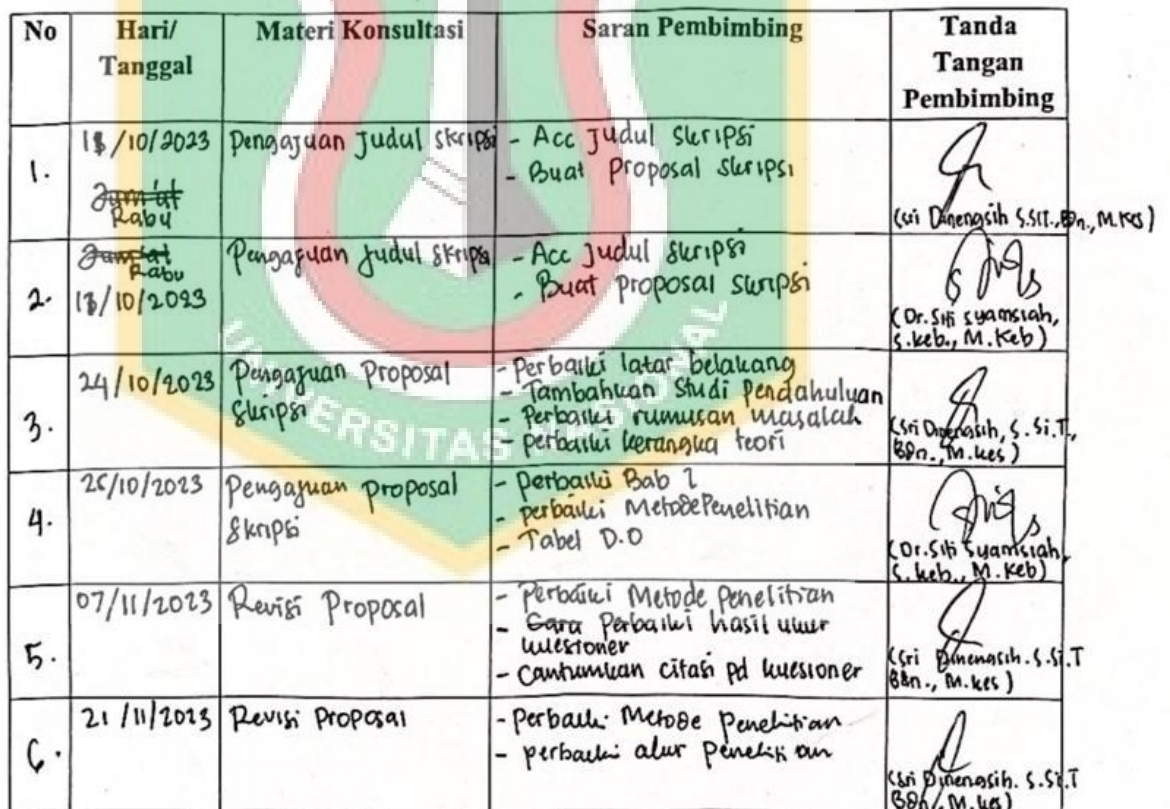 No
Hari/
Tanggal
Materi Konsultasi
Saran Pembimbing
Tanda
Tangan
Pembimbing
1.
/10/2023
Jum'at
Rabu
Pengajuan Judul skripsi
- Acc Judul skripsi
- Buat Proposal skripsi
(Sri Dinengsih S.SiT., BDn., M.Kes)
2.
Jum'at
Rabu
/10/2023
Pengajuan Judul Skripsi
- Acc Judul skripsi
- Buat proposal skripsi
(Dr. Siti Syamsiah,
S.Keb., M.Keb)
3.
24/10/2023
Pengajuan Proposal
Skripsi
- Perbaiki latar belakang
- Tambahkan Studi Pendahuluan
- Perbaiki rumusan masalah
- perbaiki kerangka teori
(Sri Dinengsih, S.Si.T,
BDn., M.kes)
4.
/10/2023
Pengajuan Proposal
Skripsi
- perbaiki Bab 1
- perbaiki Metode Penelitian
- Tabel D.O
(Dr. Siti Syamsiah,
S.keb., M.Keb)
5.
07/11/2023
Revisi Proposal
- Perbaiki Metode Penelitian
- Cara Perbaiki hasil ukur
kuesioner
- Cantumkan citasi pd kuesioner
(Sri Dinengsih. S.Si.T
BDn., M.kes)
6.
21/11/2023
Revisi Proposal
- Perbaiki Metode Penelitian
- perbaiki alur Penelitian
(Sri Dinengsih. S.Si.T
BDn., M.kes)
UNIVERSITAS NASIONAL